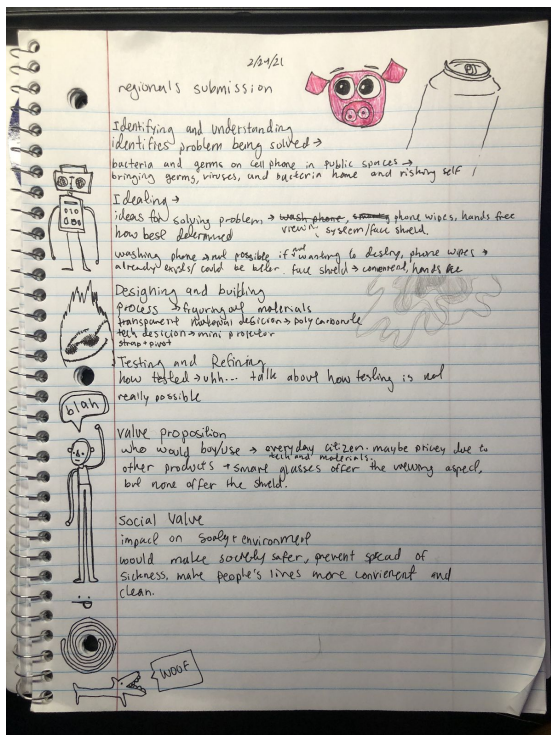 2/24/21
regionals submission
Identifying and understanding
identifies problem being solved →
bacteria and germs on cell phone in public spaces →
bringing germs, viruses, and bacteria home and risking self
Idealing →
ideas for solving problem → wash phone, phone wipes, hands free
how best determined viewing system/face shield.
washing phone → not possible if not wanting to destroy, phone wipes →
already exists/could be better. face shield → convenient, hands free
Designing and building
process → figuring out materials
transparent material desicion → polycarbonate
tech desicion → mini projector
strap + pivot
Testing and Refining
how tested → uhh... talk about how testing is not
really possible
blah
value proposition
who would buy/use → everyday citizen. maybe pricey due to
tech and materials.
other products → smart glasses offer the viewing aspect,
but none offer the shield.
Social Value
impact on society + environment
would make society safer, prevent spread of
sickness, make people's lives more convienent and
clean.
WOOF